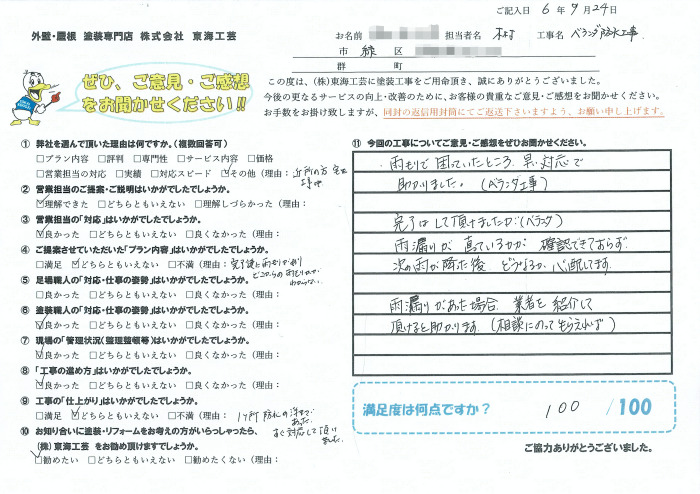 ご記入日 6年9月24日
外壁・屋根 塗装専門店 株式会社 東海工芸
お名前 担当者名 工事名 ベランダ防水工事
市 緑 区
郡 町
ぜひ、ご意見・ご感想
をお聞かせください!!
この度は、(株)東海工芸に塗装工事をご用命頂き、誠にありがとうございました。
今後の更なるサービスの向上・改善のために、お客様の貴重なご意見・ご感想をお聞かせください。
お手数をお掛け致しますが、同封の返信用封筒にてご返送下さいますよう、お願い申し上げます。
① 弊社を選んで頂いた理由は何ですか。(複数回答可)
□プラン内容 □評判 □専門性 □サービス内容 □価格
□営業担当の対応 □実績 □対応スピード ☑その他(理由:近所の方
工事中
② 営業担当のご提案・ご説明はいかがでしたでしょうか。
☑理解できた □どちらともいえない □理解しづらかった(理由:
③ 営業担当の「対応」はいかがでしたでしょうか。
☑良かった □どちらともいえない □良くなかった(理由:
④ ご提案させていただいた「プラン内容」はいかがでしたでしょうか。
□満足 ☑どちらともいえない □不満(理由:完了後に雨もりが
どこからの雨もりか
わからない
⑤ 足場職人の「対応・仕事の姿勢」はいかがでしたでしょうか。
□良かった □どちらともいえない □良くなかった(理由:
⑥ 塗装職人の「対応・仕事の姿勢」はいかがでしたでしょうか。
☑良かった □どちらともいえない □良くなかった(理由:
⑦ 現場の「管理状況(整理整頓等)」はいかがでしたでしょうか。
☑良かった □どちらともいえない □良くなかった(理由:
⑧ 「工事の進め方」はいかがでしたでしょうか。
☑良かった □どちらともいえない □良くなかった(理由:
⑨ 工事の「仕上がり」はいかがでしたでしょうか。
□満足 ☑どちらともいえない □不満(理由:1ヶ所 防水の
あった。
すぐ対応して頂け
ました。
⑩ お知り合いに塗装・リフォームをお考えの方がいらっしゃったら、
(株)東海工芸 をお勧め頂けますでしょうか。
☑勧めたい □どちらともいえない □勧めたくない(理由:
⑪ 今回の工事についてご意見・ご感想をぜひお聞かせください。
・雨もりで困っていたところ、早い対応で
助かりました。(ベランダ工事)
完了はして頂けましたが(ベランダ)
雨漏りが直っているかが確認できておらず
次の雨が降った後 どうなるか心配してます。
雨漏りがあった場合、業者を紹介して
頂けると助かります。(相談にのってもらえれば)
満足度は何点ですか? 100 /100
ご協力ありがとうございました。